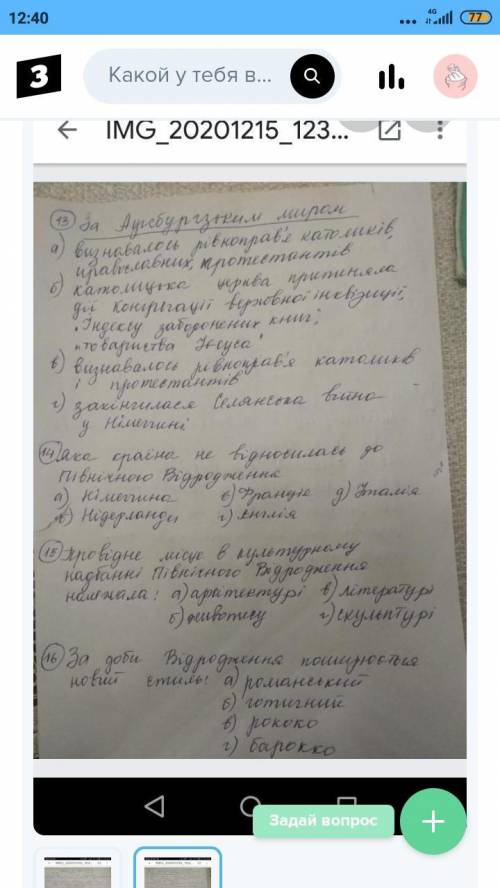 12:40
4G
77
З
Какой у тебя в...
IMG_20201215_123...
13 За Аугсбургзьким миром
а) визнавалось рівноправ'я католиків,
православних, протестантів
б) католицька церква припиняла
дії Конгрегації верховної інквізиції,
"Індексу заборонених книг",
"товариства Ісуса"
в) визнавалось рівноправ'я католиків
і протестантів
г) закінчилася Селянська війна
у Німеччині
14 Яка країна не відносилась до
Північного Відродження
а) Німеччина в) Франція д) Італія
б) Нідерланди г) Англія
15 Провідне місце в культурному
надбанні Північного Відродження
належала: а) архітектурі в) літературі
б) живопису г) скульптурі
16 За доби Відродження поширюється
новий стиль: а) романський
б) готичний
в) рококо
г) барокко
Задай вопрос